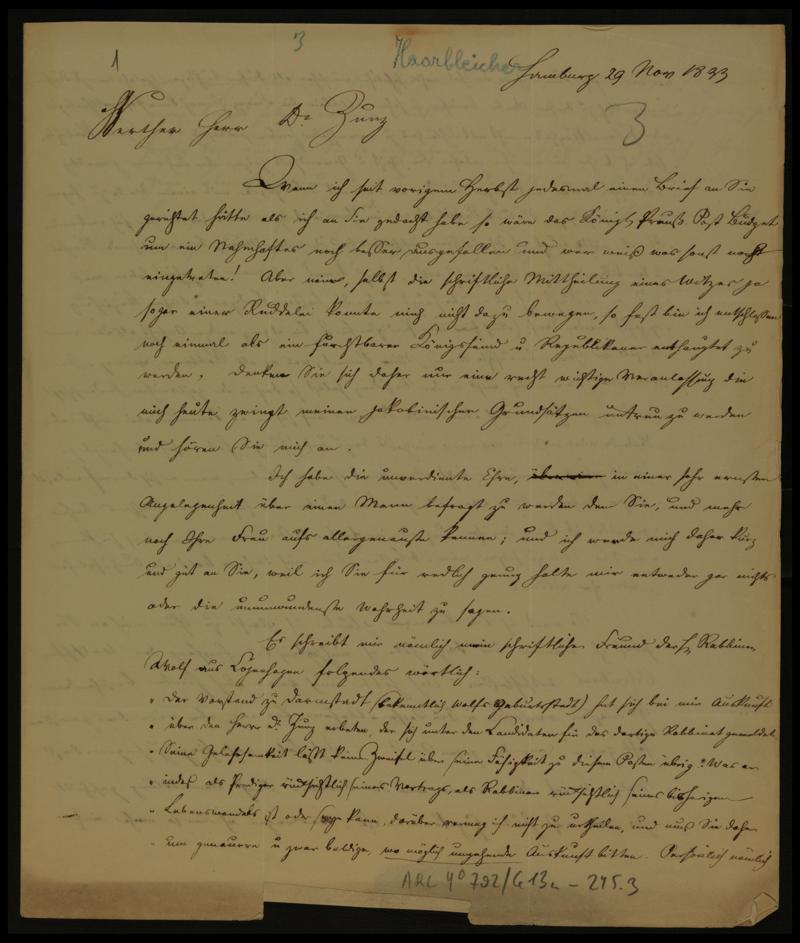 1
3
Haarbleicher
Hamburg 29 Nov 1833
3
Werther Herr Dr Zunz
Wenn ich seit vorigem Herbst jedesmal einen Brief an Sie
gerichtet hätte als ich an Sie gedacht habe so wäre das Königl. Preuß. Post Budget
um ein Nahmhaftes noch besser ausgefallen und wer weiß was sonst noch
eingetreten! Aber nein, selbst die schriftliche Mittheilung eines Witzes ja
sogar einer Kuddelei konnte mich nicht dazu bewegen, so fest bin ich entschlossen
noch einmal als ein furchtbarer Königsfeind u Republikaner enthauptet zu
werden. Denken Sie sich daher nur eine recht wichtige Veranlassung die
mich heute zwingt meinen jakobinischen Grundsätzen untreu zu werden
und hören Sie mich an.
Ich habe die unverdiente Ehre, in einer sehr ernsten
Angelegenheit über einen Mann befragt zu werden den Sie, und mehr
noch Ihre Frau aufs allergenauste kennen; und ich wende mich daher kurz
und gut an Sie, weil ich Sie für redlich genug halte mir entweder gar nichts
oder die unumwundenste Wahrheit zu sagen.
Es schreibt mir nämlich mein schriftlicher Freund der H. Rabbiner
Wolf aus Copenhagen folgendes wörtlich:
" Der Vorstand zu Darmstadt (bekanntlich Wolfs Geburtsstadt) hat sich bei mir Auskunft
" über den Herrn Dr. Zunz erbeten, der sich unter den Candidaten für das dortige Rabbinat gemeldet.
" Seine Gelehrsamkeit läßt keine Zweifel über seine Fähigkeit zu diesem Posten übrig. Was er
" indeß als Prediger rücksichtlich seines Vortrags, als Rabbiner rücksichtlich seines bisherigen
" Lebenswandels ist oder seyn kann, darüber vermag ich nicht zu urtheilen, und muß Sie daher
" um genauere u zwar baldige, wo möglich umgehende Auskunft bitten. Persönlich nämlich
ARC 4° 792/G 13a - 245.3